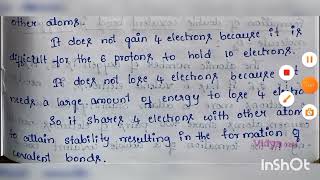 other atoms.
It does not gain 4 electrons because it is
difficult for the 6 protons to hold 10 electrons.
It does not lose 4 electrons because it
needs a large amount of energy to lose 4 electro
So it shares 4 electrons with other atom
to attain stability resulting in the formation of
covalent bonds.
InShOt